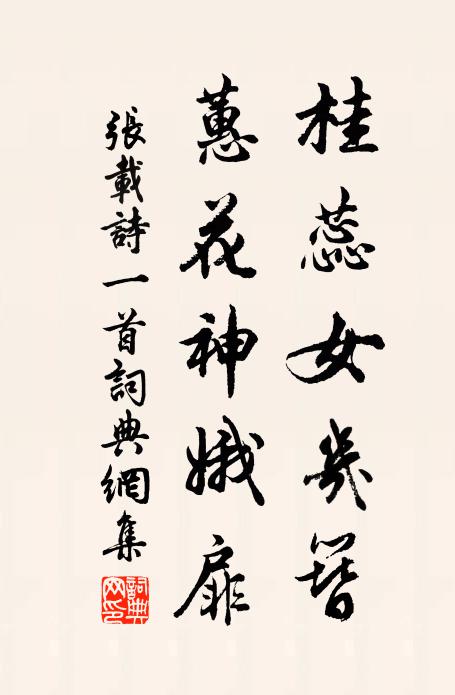 桂蕊女幾簪
蕙花神娥扉
張載詩一首詞典網集
詞典網印